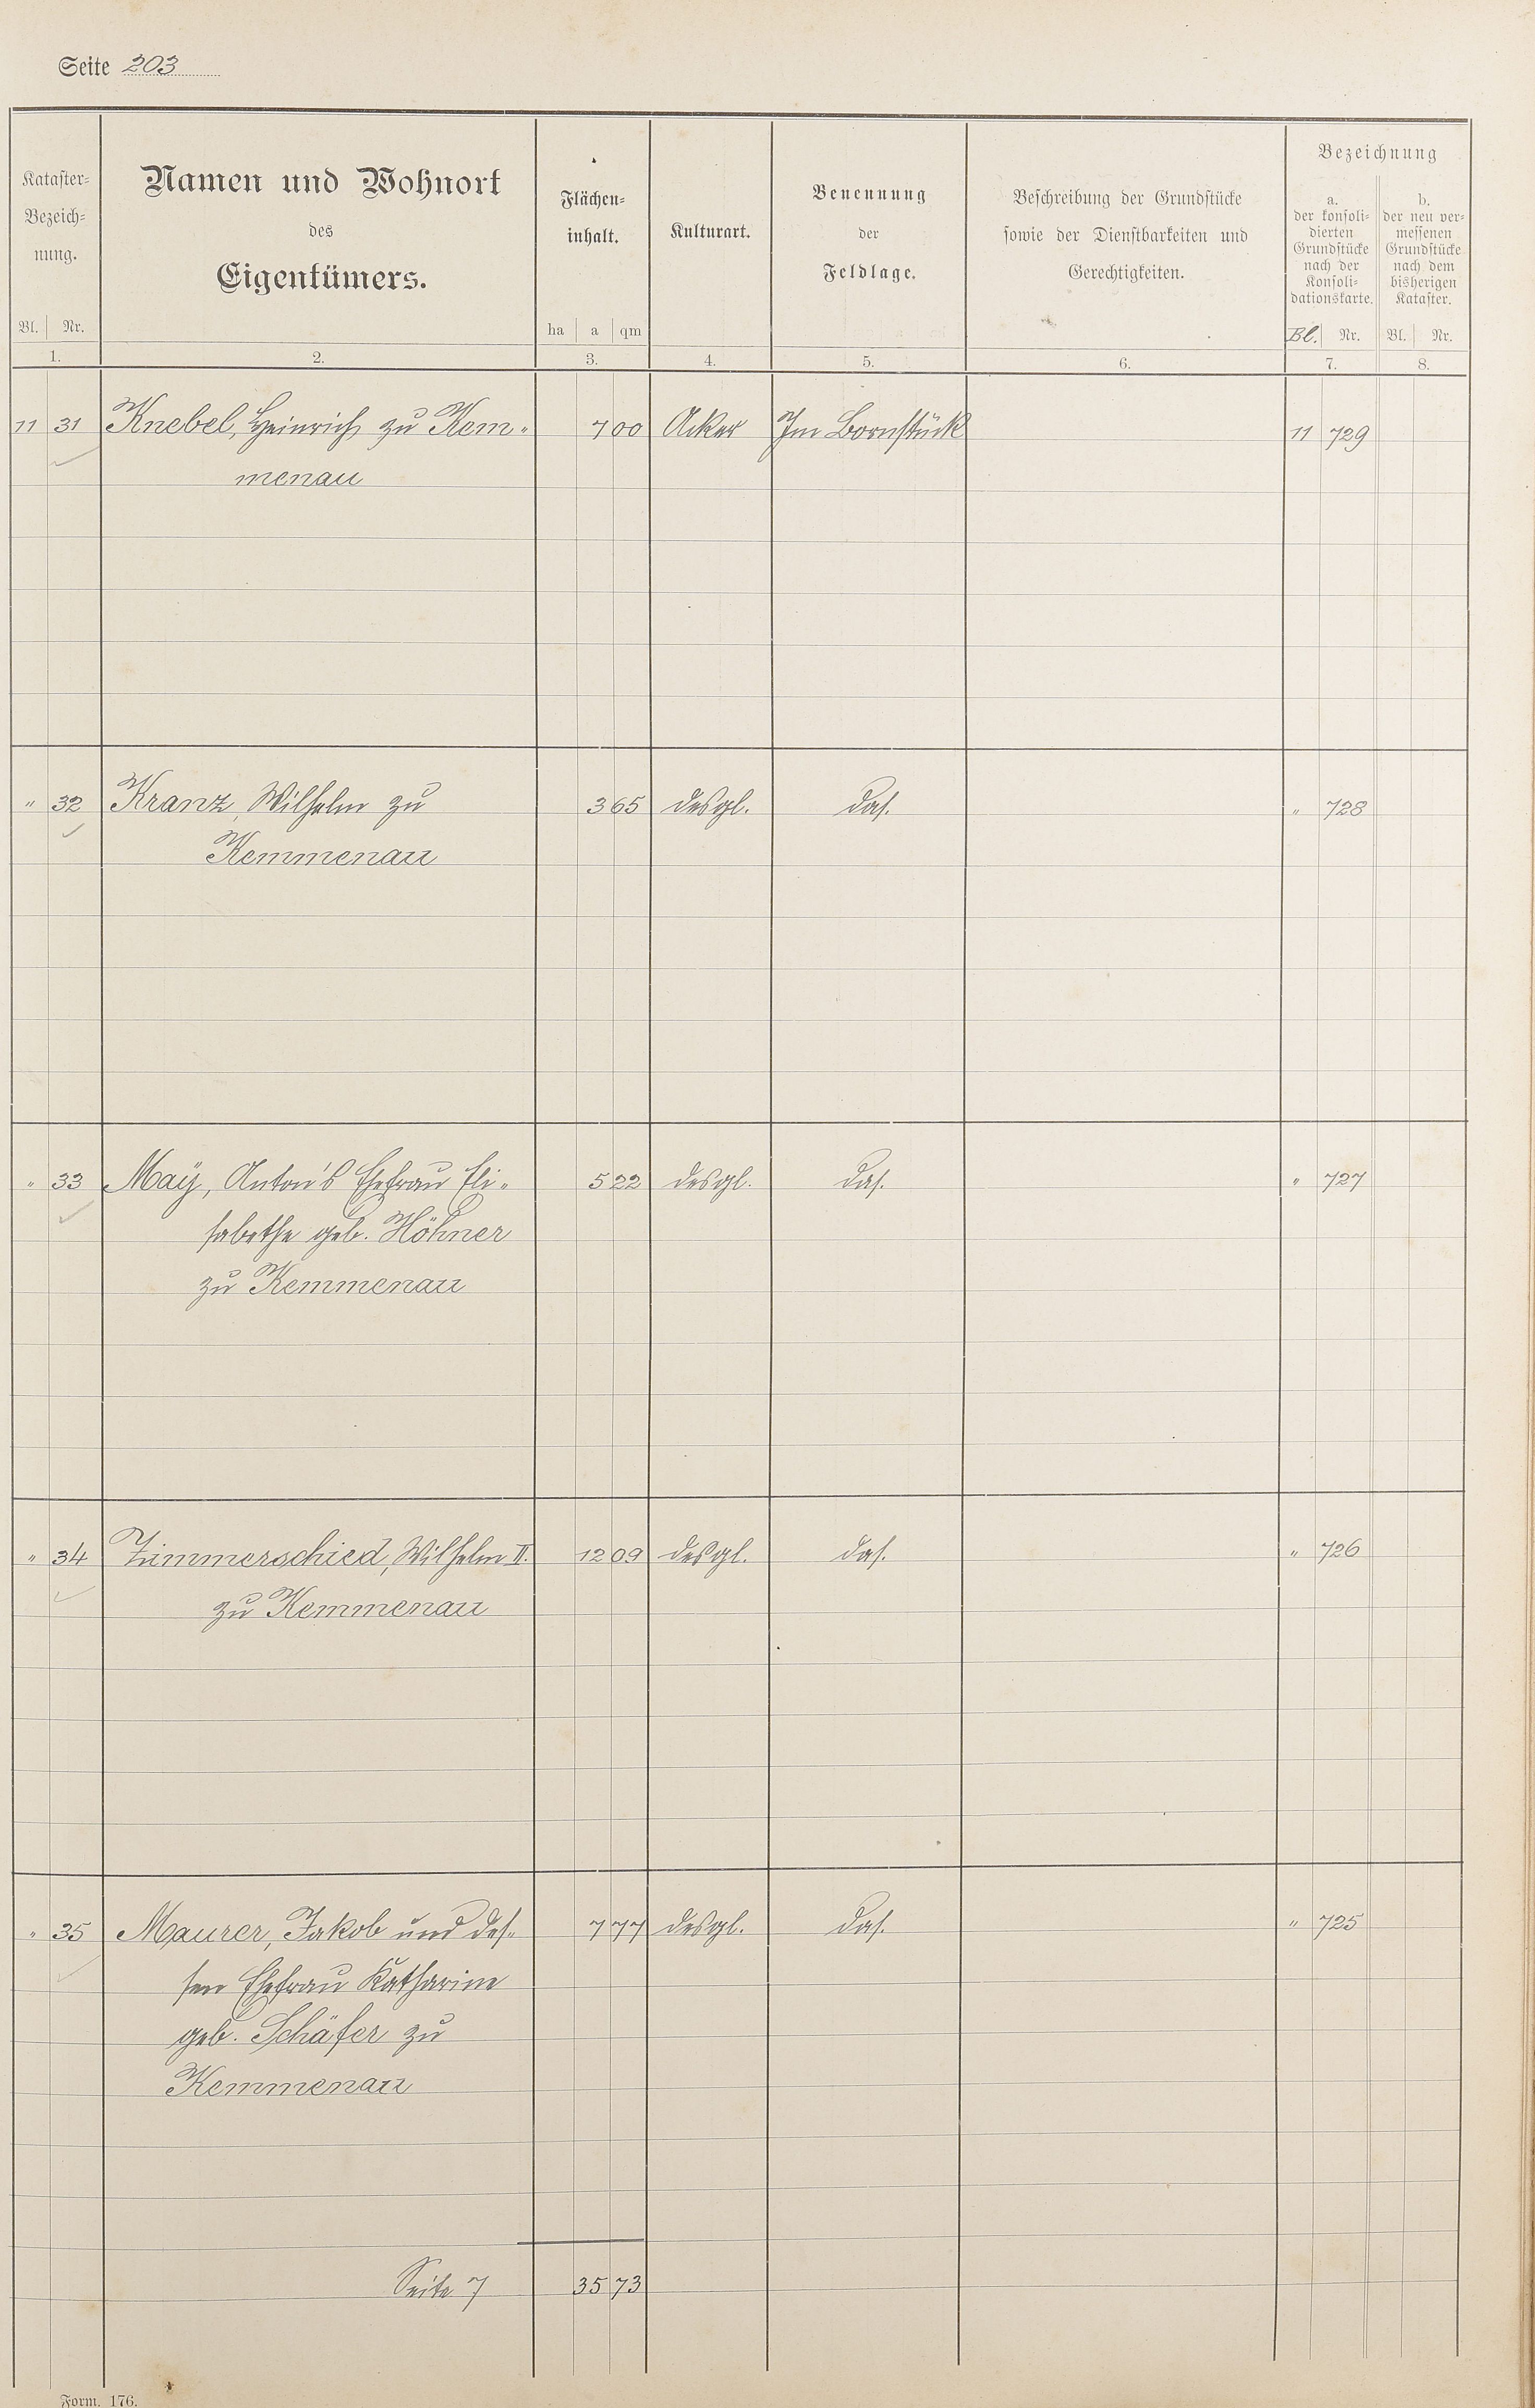 Seite 203
Kataster-
Bezeich-
nung.
Bl. Nr.
1.
Namen und Wohnort
des
Eigentümers.
2.
Flächen-
inhalt.
ha a qm
3.
Kulturart.
4.
Benennung
der
Feldlage.
5.
Beschreibung der Grundstücke
sowie der Dienstbarkeiten und
Gerechtigkeiten.
6.
Bezeichnung
a.
der konsoli-
dierten
Grundstücke
nach der
Konsoli-
dationskarte.
Bl. Nr.
7.
b.
der neu ver-
messenen
Grundstücke
nach dem
bisherigen
Kataster.
Bl. Nr.
8.
11 31 Knebel, Heinrich zu Kem- 7 00 Acker Im Bornstück 11 729
menau
" 32 Kranz, Wilhelm zu 3 65 desgl. das. " 728
Kemmenau
" 33 Maÿ, Anton's Ehefrau Eli- 5 22 desgl. das. " 727
sabethe geb. Höhner
zu Kemmenau
" 34 Zimmerschied, Wilhelm II. 12 09 desgl. das. " 726
zu Kemmenau
" 35 Maurer, Jakob und des- 7 77 desgl. das. " 725
sen Ehefrau Katharine
geb. Schäfer zu
Kemmenau
Seite 7 35 73
Form. 176.